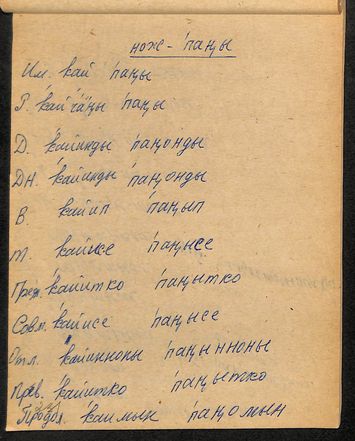 нож - паӈы
Им. кай паӈы
Р. кай паӈы
Д. кайинды паӈонды
ДН. кайинды паӈонды
В. кайип паӈып
Т. кайисе паӈысе
Пред. кайитко паӈытко
Совм. кайисе паӈысе
Отл. кайинноны паӈынноны
Прев. кайитко паӈытко
Продол. каймын паӈомын